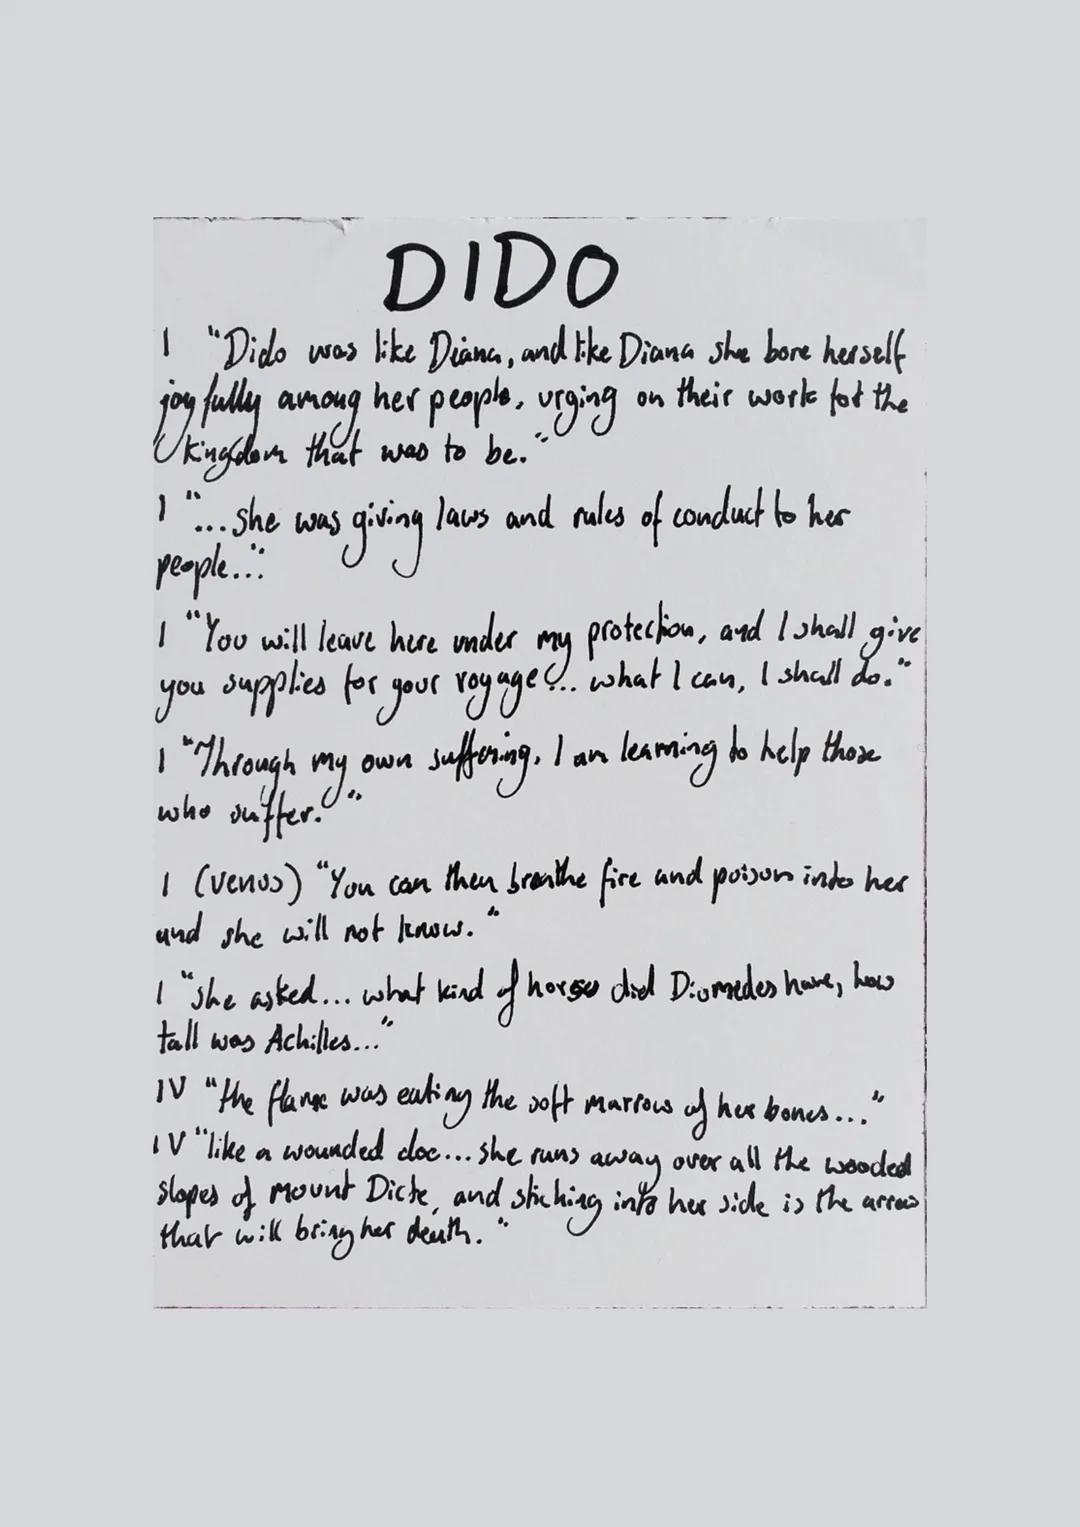 DIDO
I "Dido was like Diana, and like Diana she bore herself
joyfully among her people, urging on their work for the
kingdom that was to be."
I "...she was giving laws and rules of conduct to her
people..."
I "You will leave here under my protection, and I shall give
you supplies for your voyage... what I can, I shall do."
I "Through my own suffering, I am learning to help those
who suffer."
I (Venus) "You can then breathe fire and poison into her
and she will not know."
I "she asked... what kind of horses did Diomedes have, how
tall was Achilles..."
IV "the flame was eating the soft marrow of her bones..."
IV "like a wounded doe... she runs away over all the wooded
slopes of Mount Dicte, and sticking into her side is the arrow
that will bring her death."